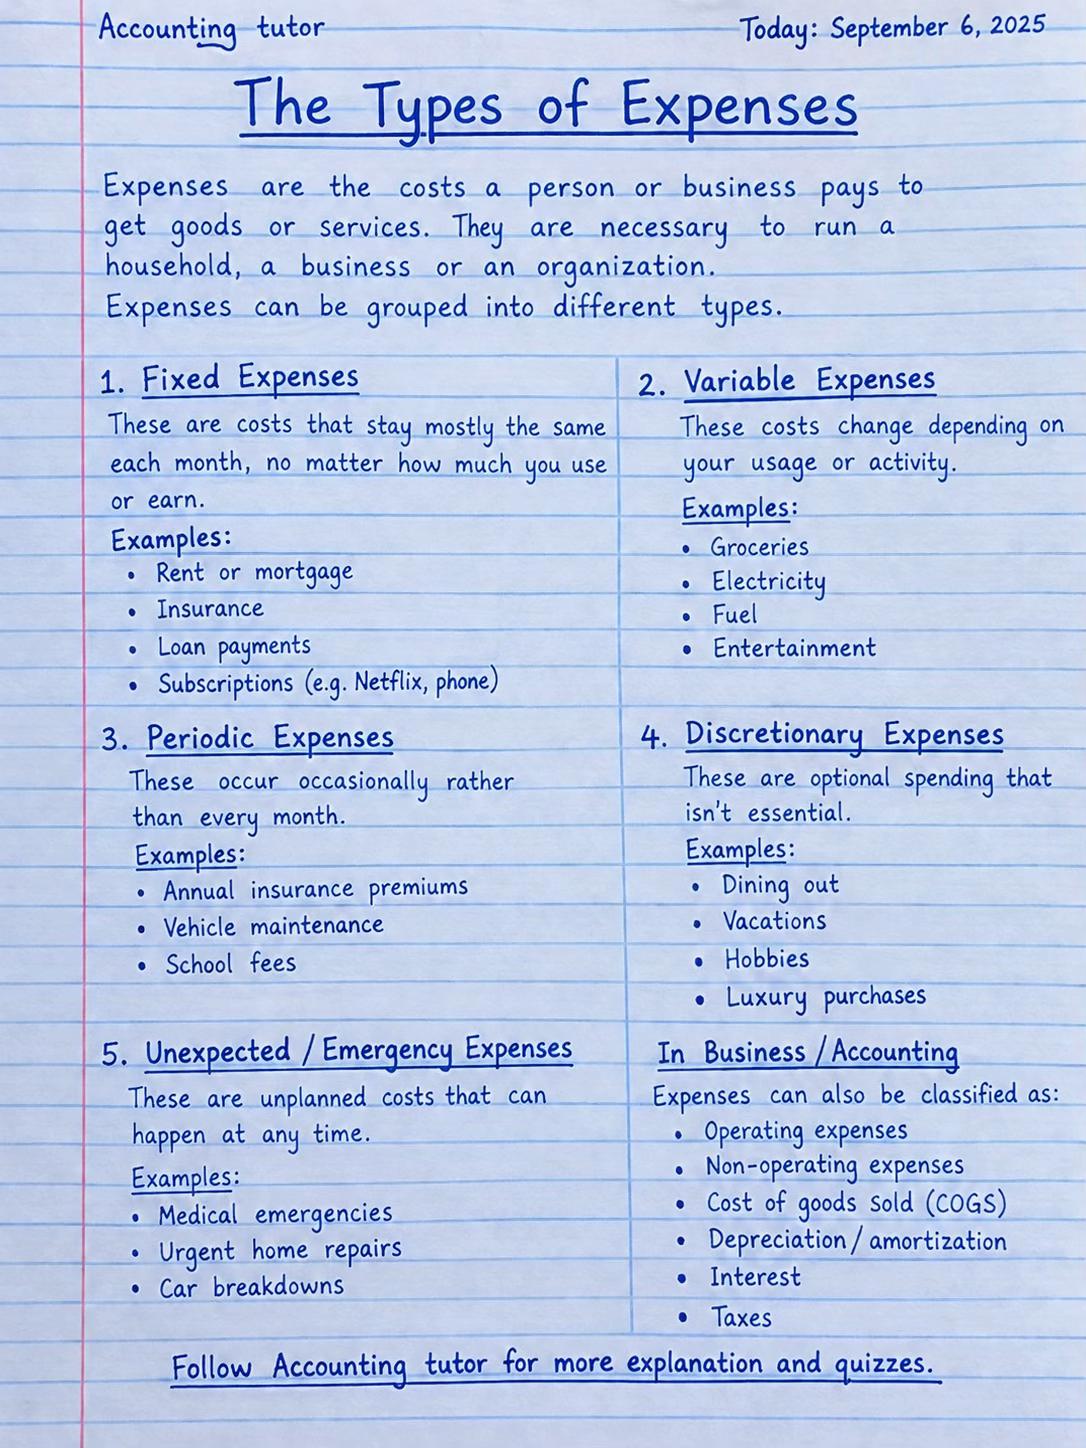 Accounting tutor
Today: September 6, 2025
The Types of Expenses
Expenses are the costs a person or business pays to
get goods or services. They are necessary to run a
household, a business or an organization.
Expenses can be grouped into different types.
1. Fixed Expenses
These are costs that stay mostly the same
each month, no matter how much you use
or earn.
Examples:
• Rent or mortgage
• Insurance
• Loan payments
• Subscriptions (e.g. Netflix, phone)
2. Variable Expenses
These costs change depending on
your usage or activity.
Examples:
• Groceries
• Electricity
• Fuel
• Entertainment
3. Periodic Expenses
These occur occasionally rather
than every month.
Examples:
• Annual insurance premiums
• Vehicle maintenance
• School fees
4. Discretionary Expenses
These are optional spending that
isn't essential.
Examples:
• Dining out
• Vacations
• Hobbies
• Luxury purchases
5. Unexpected / Emergency Expenses
These are unplanned costs that can
happen at any time.
Examples:
• Medical emergencies
• Urgent home repairs
• Car breakdowns
In Business / Accounting
Expenses can also be classified as:
• Operating expenses
• Non-operating expenses
• Cost of goods sold (COGS)
• Depreciation / amortization
• Interest
• Taxes
Follow Accounting tutor for more explanation and quizzes.